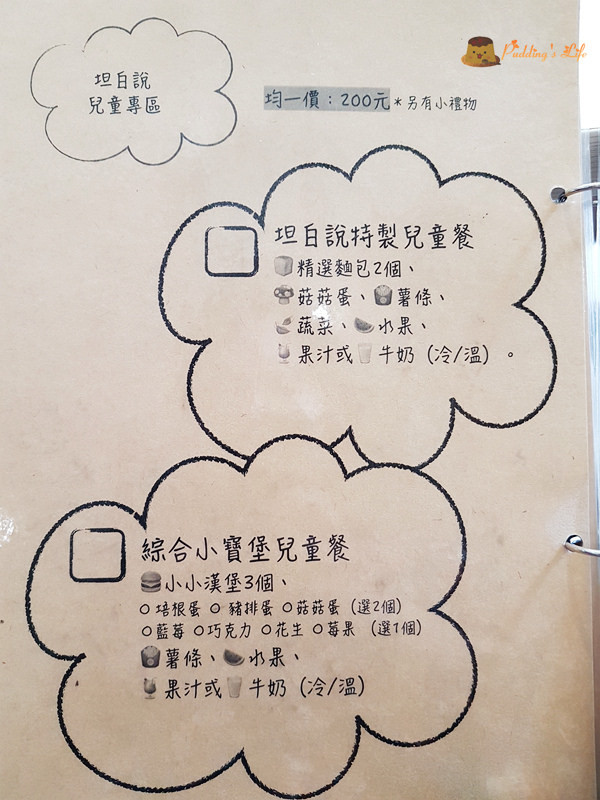 Pudding's Life
坦白說
兒童專區
均一價：200元＊另有小禮物
坦白說特製兒童餐
精選麵包2個、
菇菇蛋、薯條、
蔬菜、水果、
果汁或牛奶（冷/溫）。
綜合小寶堡兒童餐
小小漢堡3個、
○培根蛋 ○豬排蛋 ○菇菇蛋（選2個）
○藍莓 ○巧克力 ○花生 ○莓果（選1個）
薯條、水果、
果汁或牛奶（冷/溫）